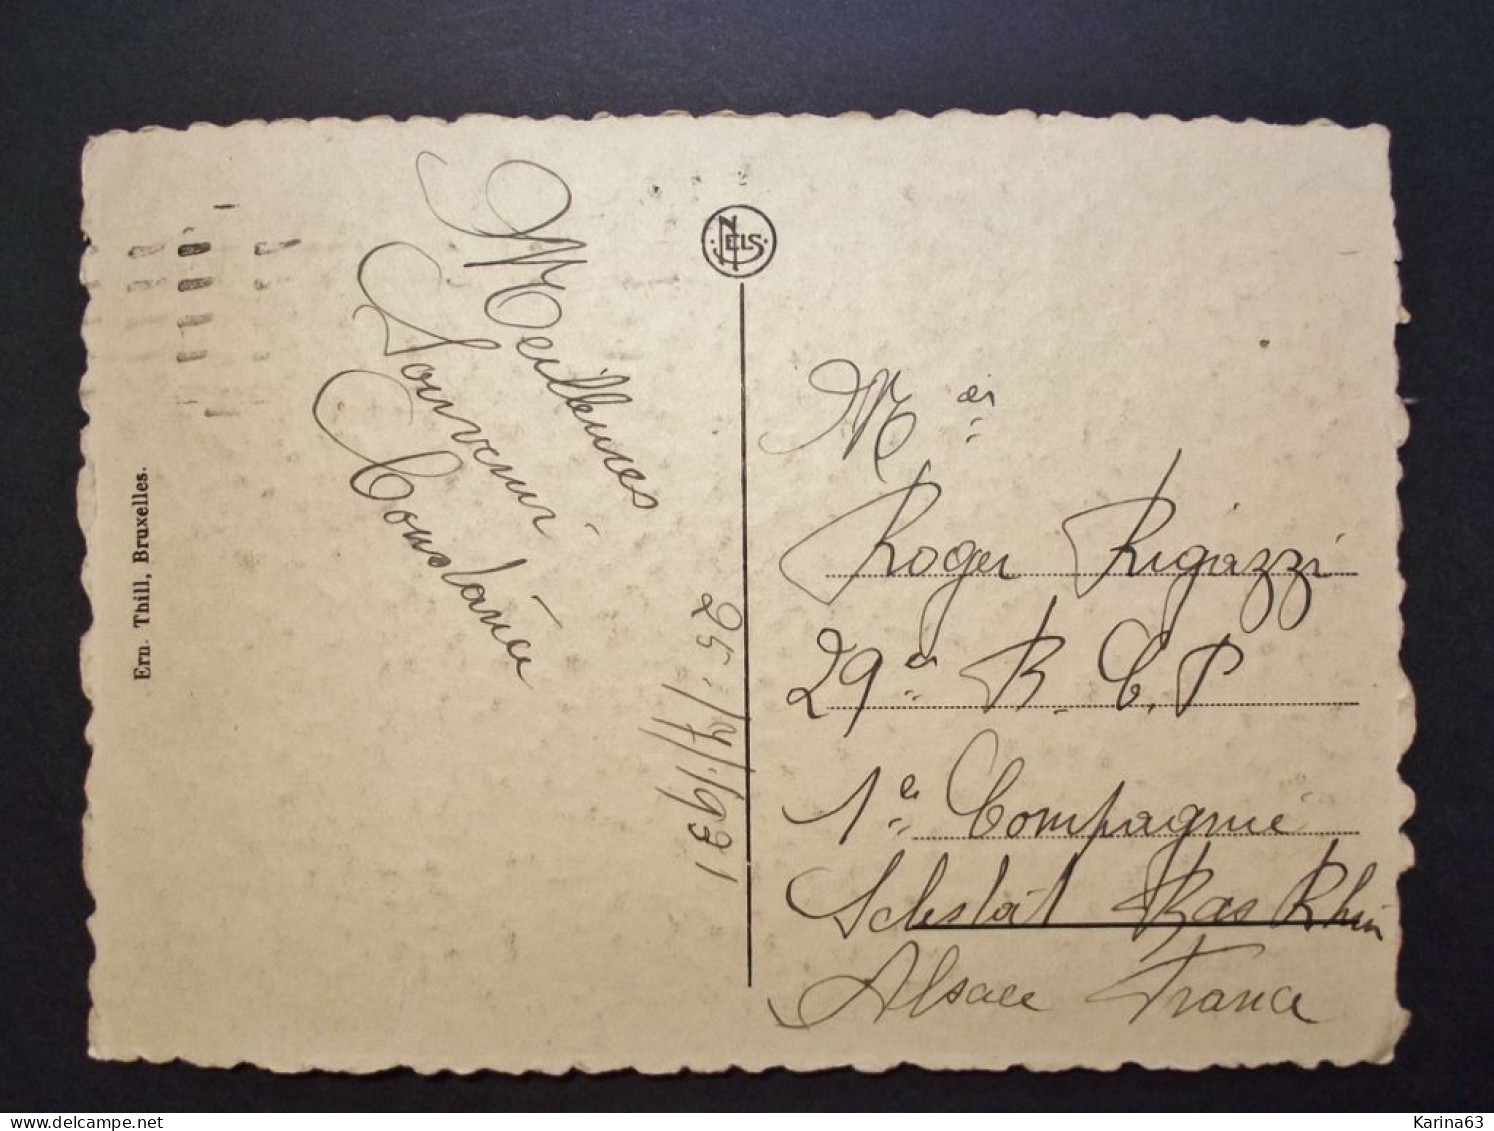 Meilleures
Souvenir
Constancia
25/7/1931
Ern. Thill, Bruxelles.
NELS
Mer
Roger Rigazzi
29e B. C. P
1e Compagnie
Schestat Bas Rhin
Alsace France
Karina63